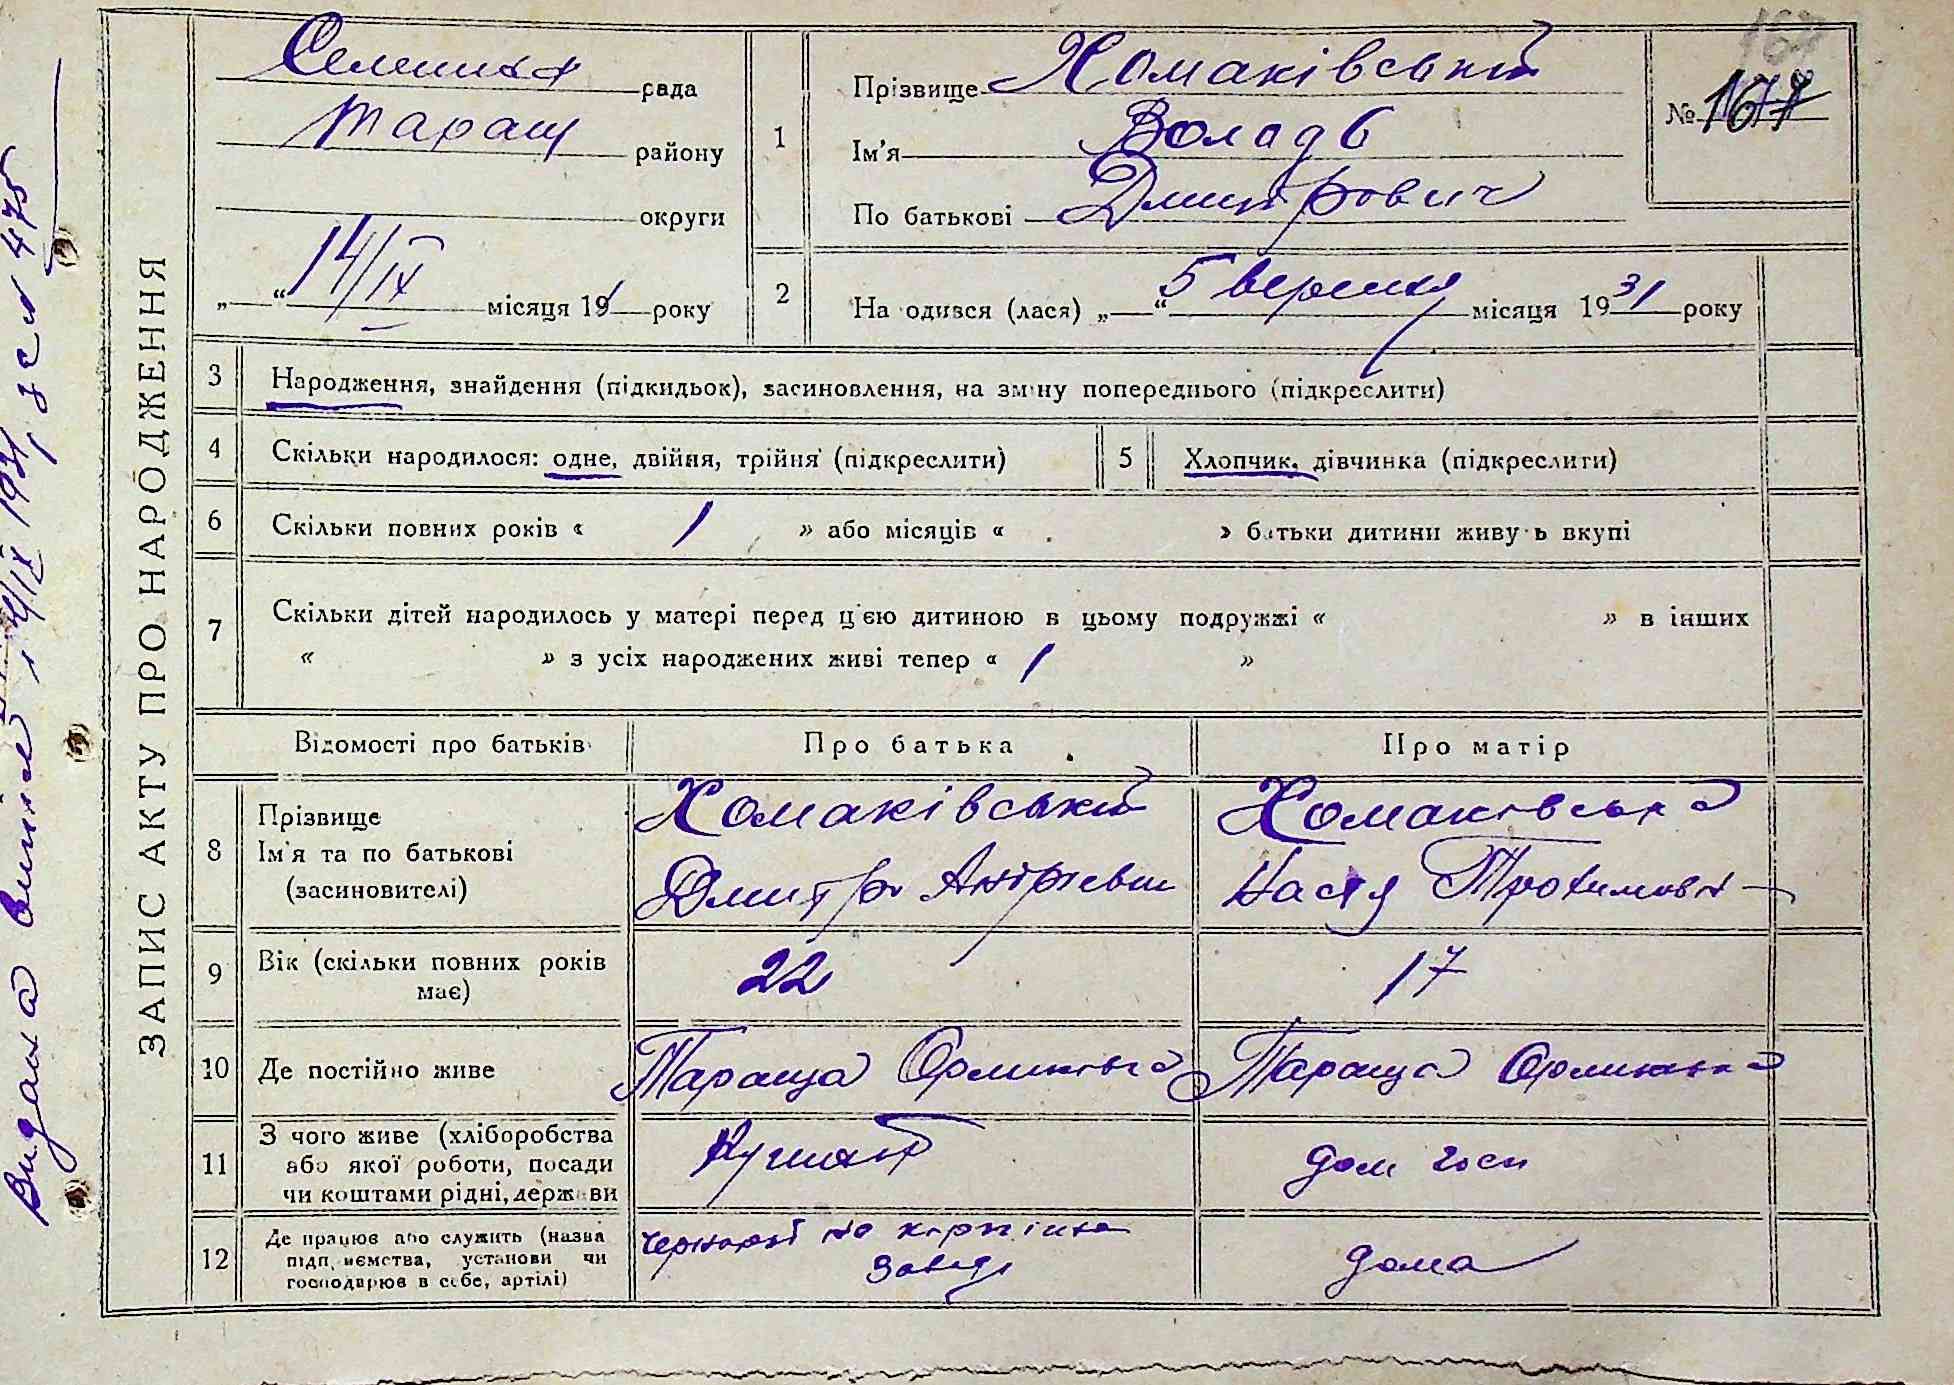 рада
Таращ району
округи
„ “ 14/IX місяця 19 року
1
Прізвище Хомаківський
Ім'я
По батькові Дмитрович
№
2
На одився (лася) „ “ 5 вересня місяця 1931 року
ЗАПИС АКТУ ПРО НАРОДЖЕННЯ
3 Народження, знайдення (підкидьок), засиновлення, на зміну попереднього (підкреслити)
4 Скільки народилося: одне, двійня, трійня (підкреслити) 5 Хлопчик, дівчинка (підкреслити)
6 Скільки повних років « 1 » або місяців « » батьки дитини живуть вкупі
7 Скільки дітей народилось у матері перед цією дитиною в цьому подружжі « » в інших
« » з усіх народжених живі тепер « 1 »
Відомості про батьків Про батька Про матір
8 Прізвище
Ім'я та по батькові
(засиновителі)
Хомаківський
Дмитро Андрієвич
Хомаківська
Настя Трохимовн
9 Вік (скільки повних років
має)
22
17
10 Де постійно живе Тараща Тараща
11 З чого живе (хліборобства
або якої роботи, посади
чи коштами рідні, держави
дом госп
12 Де працює або служить (назва
підприємства, установи чи
господарює в себе, артілі)
чернороб на
заводі
дома
Видана 14/IX 1931, за № 475